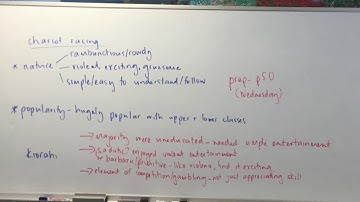 chariot racing
* nature
rambunctious/rowdy
violent, exciting, gruesome
simple/easy to understand/follow
prep - p50
(Wednesday)
* popularity - hugely popular with upper + lower classes
→ majority were uneducated - needed simple entertainment
→ sadistic? enjoyed violent entertainment
↳ barbaric/primitive - like violence, find it exciting
→ element of competition/gambling - not just appreciating skill